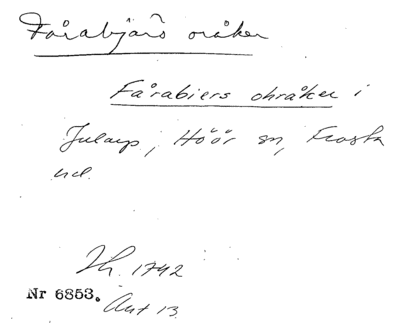 Fårabjärs oråker
Fårabiers ohråker i
Jularp, Höör sn, Frosta
hd.
Jb. 1742
Nr 6853.
Akt 13